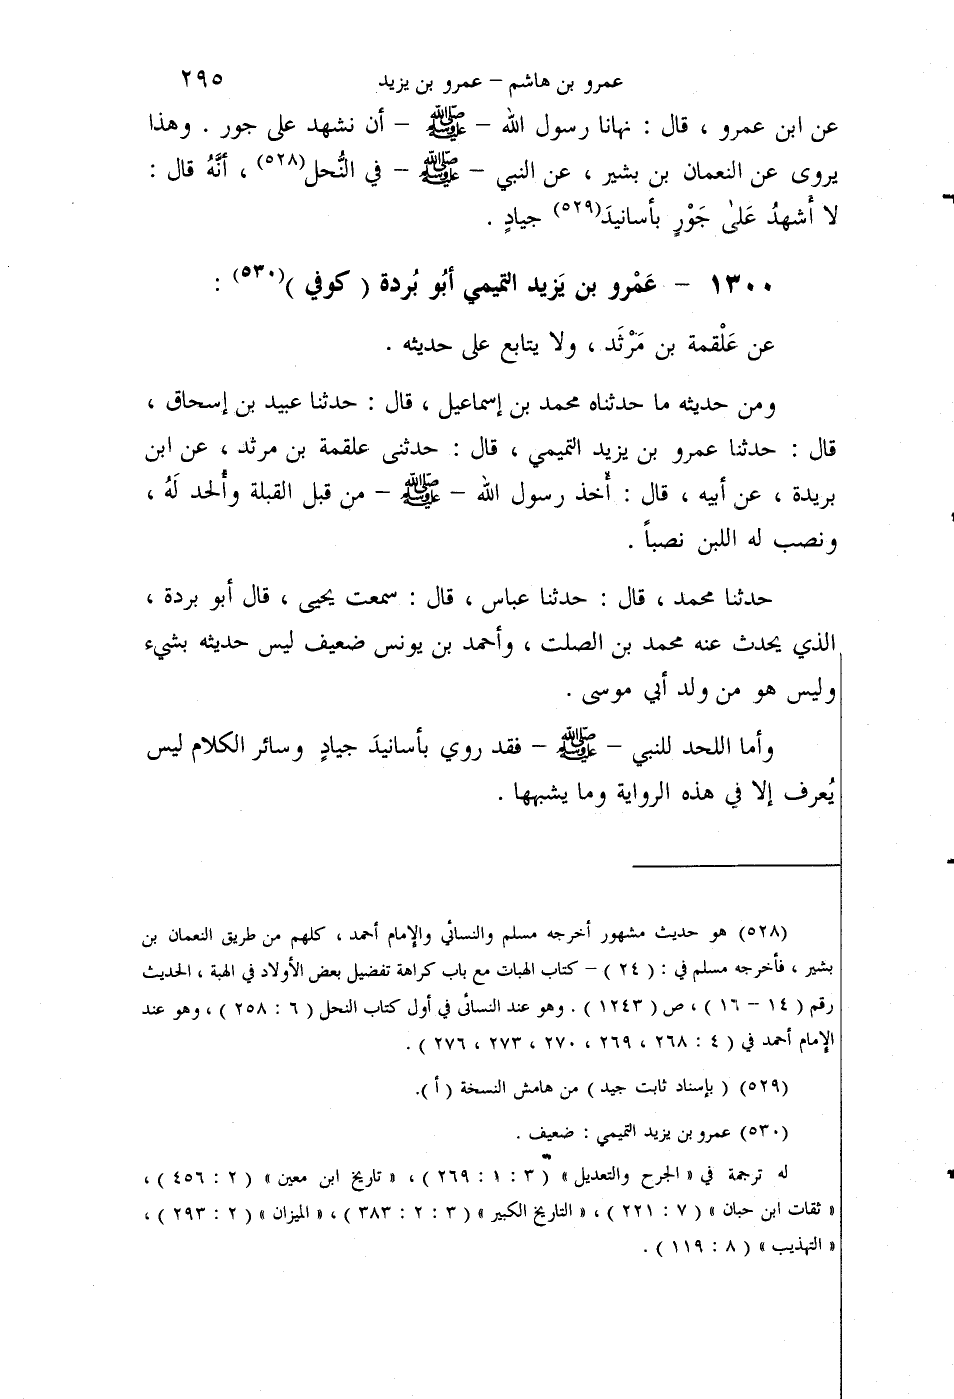 عمرو بن هاشم – عمرو بن يزيد ٢٩٥
عن ابن عمرو ، قال : نهانا رسول الله – ﷺ – أن نشهد على جور . وهذا
يروى عن النعمان بن بشير ، عن النبي – ﷺ – في النُّحل(٥٢٨) ، أنَّهُ قال :
لا أُشهدُ عَلىٰ جَوْرٍ بأسانيدَ(٥٢٩) جيادٍ .
١٣٠٠ – عَمْرو بن يَزيد التميمي أبُو بُردة ( كوفي )(٥٣٠) :
عن عَلْقمة بن مَرْثَد ، ولا يتابع على حديثه .
ومن حديثه ما حدثناه محمد بن إسماعيل ، قال : حدثنا عبيد بن إسحاق ،
قال : حدثنا عمرو بن يزيد التميمي ، قال : حدثنى علقمة بن مرثد ، عن ابن
بريدة ، عن أبيه ، قال : أُخذ رسول الله – ﷺ – من قبل القبلة وأُلحد لَهُ ،
ونصب له اللبن نصباً .
حدثنا محمد ، قال : حدثنا عباس ، قال : سمعت يحيى ، قال أبو بردة ،
الذي يحدث عنه محمد بن الصلت ، وأحمد بن يونس ضعيف ليس حديثه بشيء
وليس هو من ولد أبي موسى .
وأما اللحد للنبي – ﷺ – فقد روي بأسانيدَ جيادٍ وسائر الكلام ليس
يُعرف إلا في هذه الرواية وما يشبهها .
(٥٢٨) هو حديث مشهور أخرجه مسلم والنسائي والإمام أحمد ، كلهم من طريق النعمان بن
بشير ، فأخرجه مسلم في : ( ٢٤ ) – كتاب الهبات مع باب كراهة تفضيل بعض الأولاد في الهبة ، الحديث
رقم ( ١٤ – ١٦ ) ، ص ( ١٢٤٣ ) . وهو عند النسائى في أول كتاب النحل ( ٦ : ٢٥٨ ) ، وهو عند
الإمام أحمد في ( ٤ : ٢٦٨ ، ٢٦٩ ، ٢٧٠ ، ٢٧٣ ، ٢٧٦ ) .
(٥٢٩) ( بإسناد ثابت جيد ) من هامش النسخة ( أ ).
(٥٣٠) عمرو بن يزيد التميمي : ضعيف .
له ترجمة في « الجرح والتعديل » ( ٣ : ١ : ٢٦٩ ) ، « تاريخ ابن معين » ( ٢ : ٤٥٦ ) ،
« ثقات ابن حبان » ( ٧ : ٢٢١ ) ، « التاريخ الكبير » ( ٣ : ٢ : ٣٨٣ ) ، « الميزان » ( ٢ : ٢٩٣ ) ،
« التهذيب » ( ٨ : ١١٩ ) .